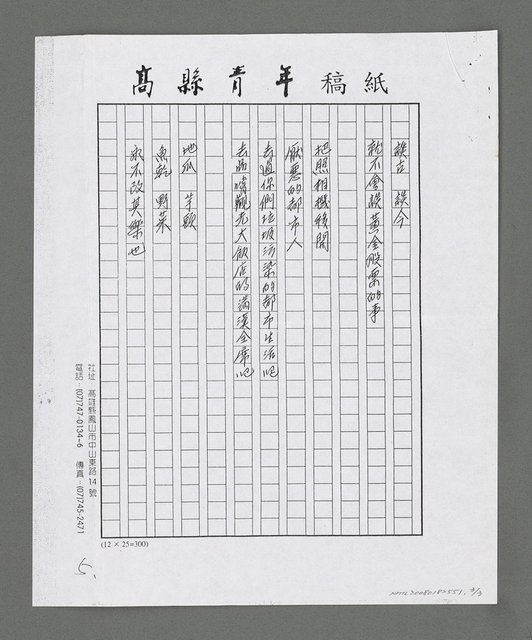 高縣青年稿紙
談古 談今
就不會談黃金股票的事
把照相機移開
厭惡的都市人
去過你們垃圾污染的都市生活吧
去品嚐觀光大飯店的滿漢全席吧
地瓜 芋頭
魚乾 野菜
永不改其樂也
社址 高雄縣鳳山市中山東路14號
電話：(07)747-0134~6 傳真：(07)745-2471
(12 × 25=300)
5.
NMTL20080182551, 3/3